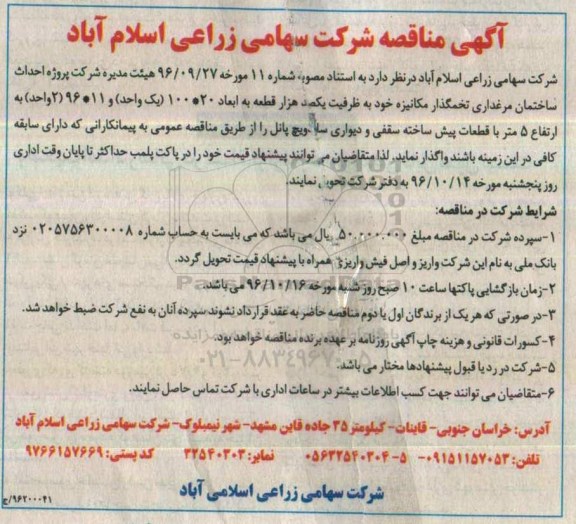 آگهی مناقصه شرکت سهامی زراعی اسلام آباد
شرکت سهامی زراعی اسلام آباد درنظر دارد به استناد مصوبه شماره ۱۱ مورخه ۹۶/۰۹/۲۷ هیئت مدیره شرکت پروژه احداث
ساختمان مرغداری تخمگذار مکانیزه خود به ظرفیت یکصد هزار قطعه به ابعاد ۲۰*۱۰۰ (یک واحد) و ۱۱*۹۶ (۲واحد) به
ارتفاع ۵ متر با قطعات پیش ساخته سقفی و دیواری ساندویچ پانل را از طریق مناقصه عمومی به پیمانکارانی که دارای سابقه
کافی در این زمینه باشند واگذار نماید. لذا متقاضیان می توانند پیشنهاد قیمت خود را در پاکت پلمب حداکثر تا پایان وقت اداری
روز پنجشنبه مورخه ۹۶/۱۰/۱۴ به دفتر شرکت تحویل نمایند.
شرایط شرکت در مناقصه:
۱-سپرده شرکت در مناقصه مبلغ ۵۰.۰۰۰.۰۰۰ ریال می باشد که می بایست به حساب شماره ۰۲۰۵۷۵۶۳۰۰۰۰۸ نزد
بانک ملی به نام این شرکت واریز و اصل فیش واریزی همراه با پیشنهاد قیمت تحویل گردد.
۲-زمان بازگشایی پاکتها ساعت ۱۰ صبح روز شنبه مورخه ۹۶/۱۰/۱۶ می باشد.
۳-در صورتی که هر یک از برندگان اول یا دوم مناقصه حاضر به عقد قرارداد نشوند، سپرده آنان به نفع شرکت ضبط خواهد شد.
۴-کسورات قانونی و هزینه چاپ آگهی روزنامه بر عهده برنده مناقصه خواهد بود.
۵-شرکت در رد یا قبول پیشنهادها مختار می باشد.
۰۲۱-۸۸۳۴۹۶۷۰-۵
۶-متقاضیان می توانند جهت کسب اطلاعات بیشتر در ساعات اداری با شرکت تماس حاصل نمایند.
آدرس: خراسان جنوبی- قاینات- کیلومتر ۳۵ جاده قاین مشهد- شهر نیمبلوک- شرکت سهامی زراعی اسلام آباد
تلفن: ۰۹۱۵۱۱۵۷۰۵۳- ۵-۰۵۶۳۲۵۴۰۳۰۴ نمابر: ۳۲۵۴۰۳۰۳ کد پستی: ۹۷۶۶۱۵۷۶۶۹
شرکت سهامی زراعی اسلامی آباد
۹۶۲۰۰۰۴۱/ج